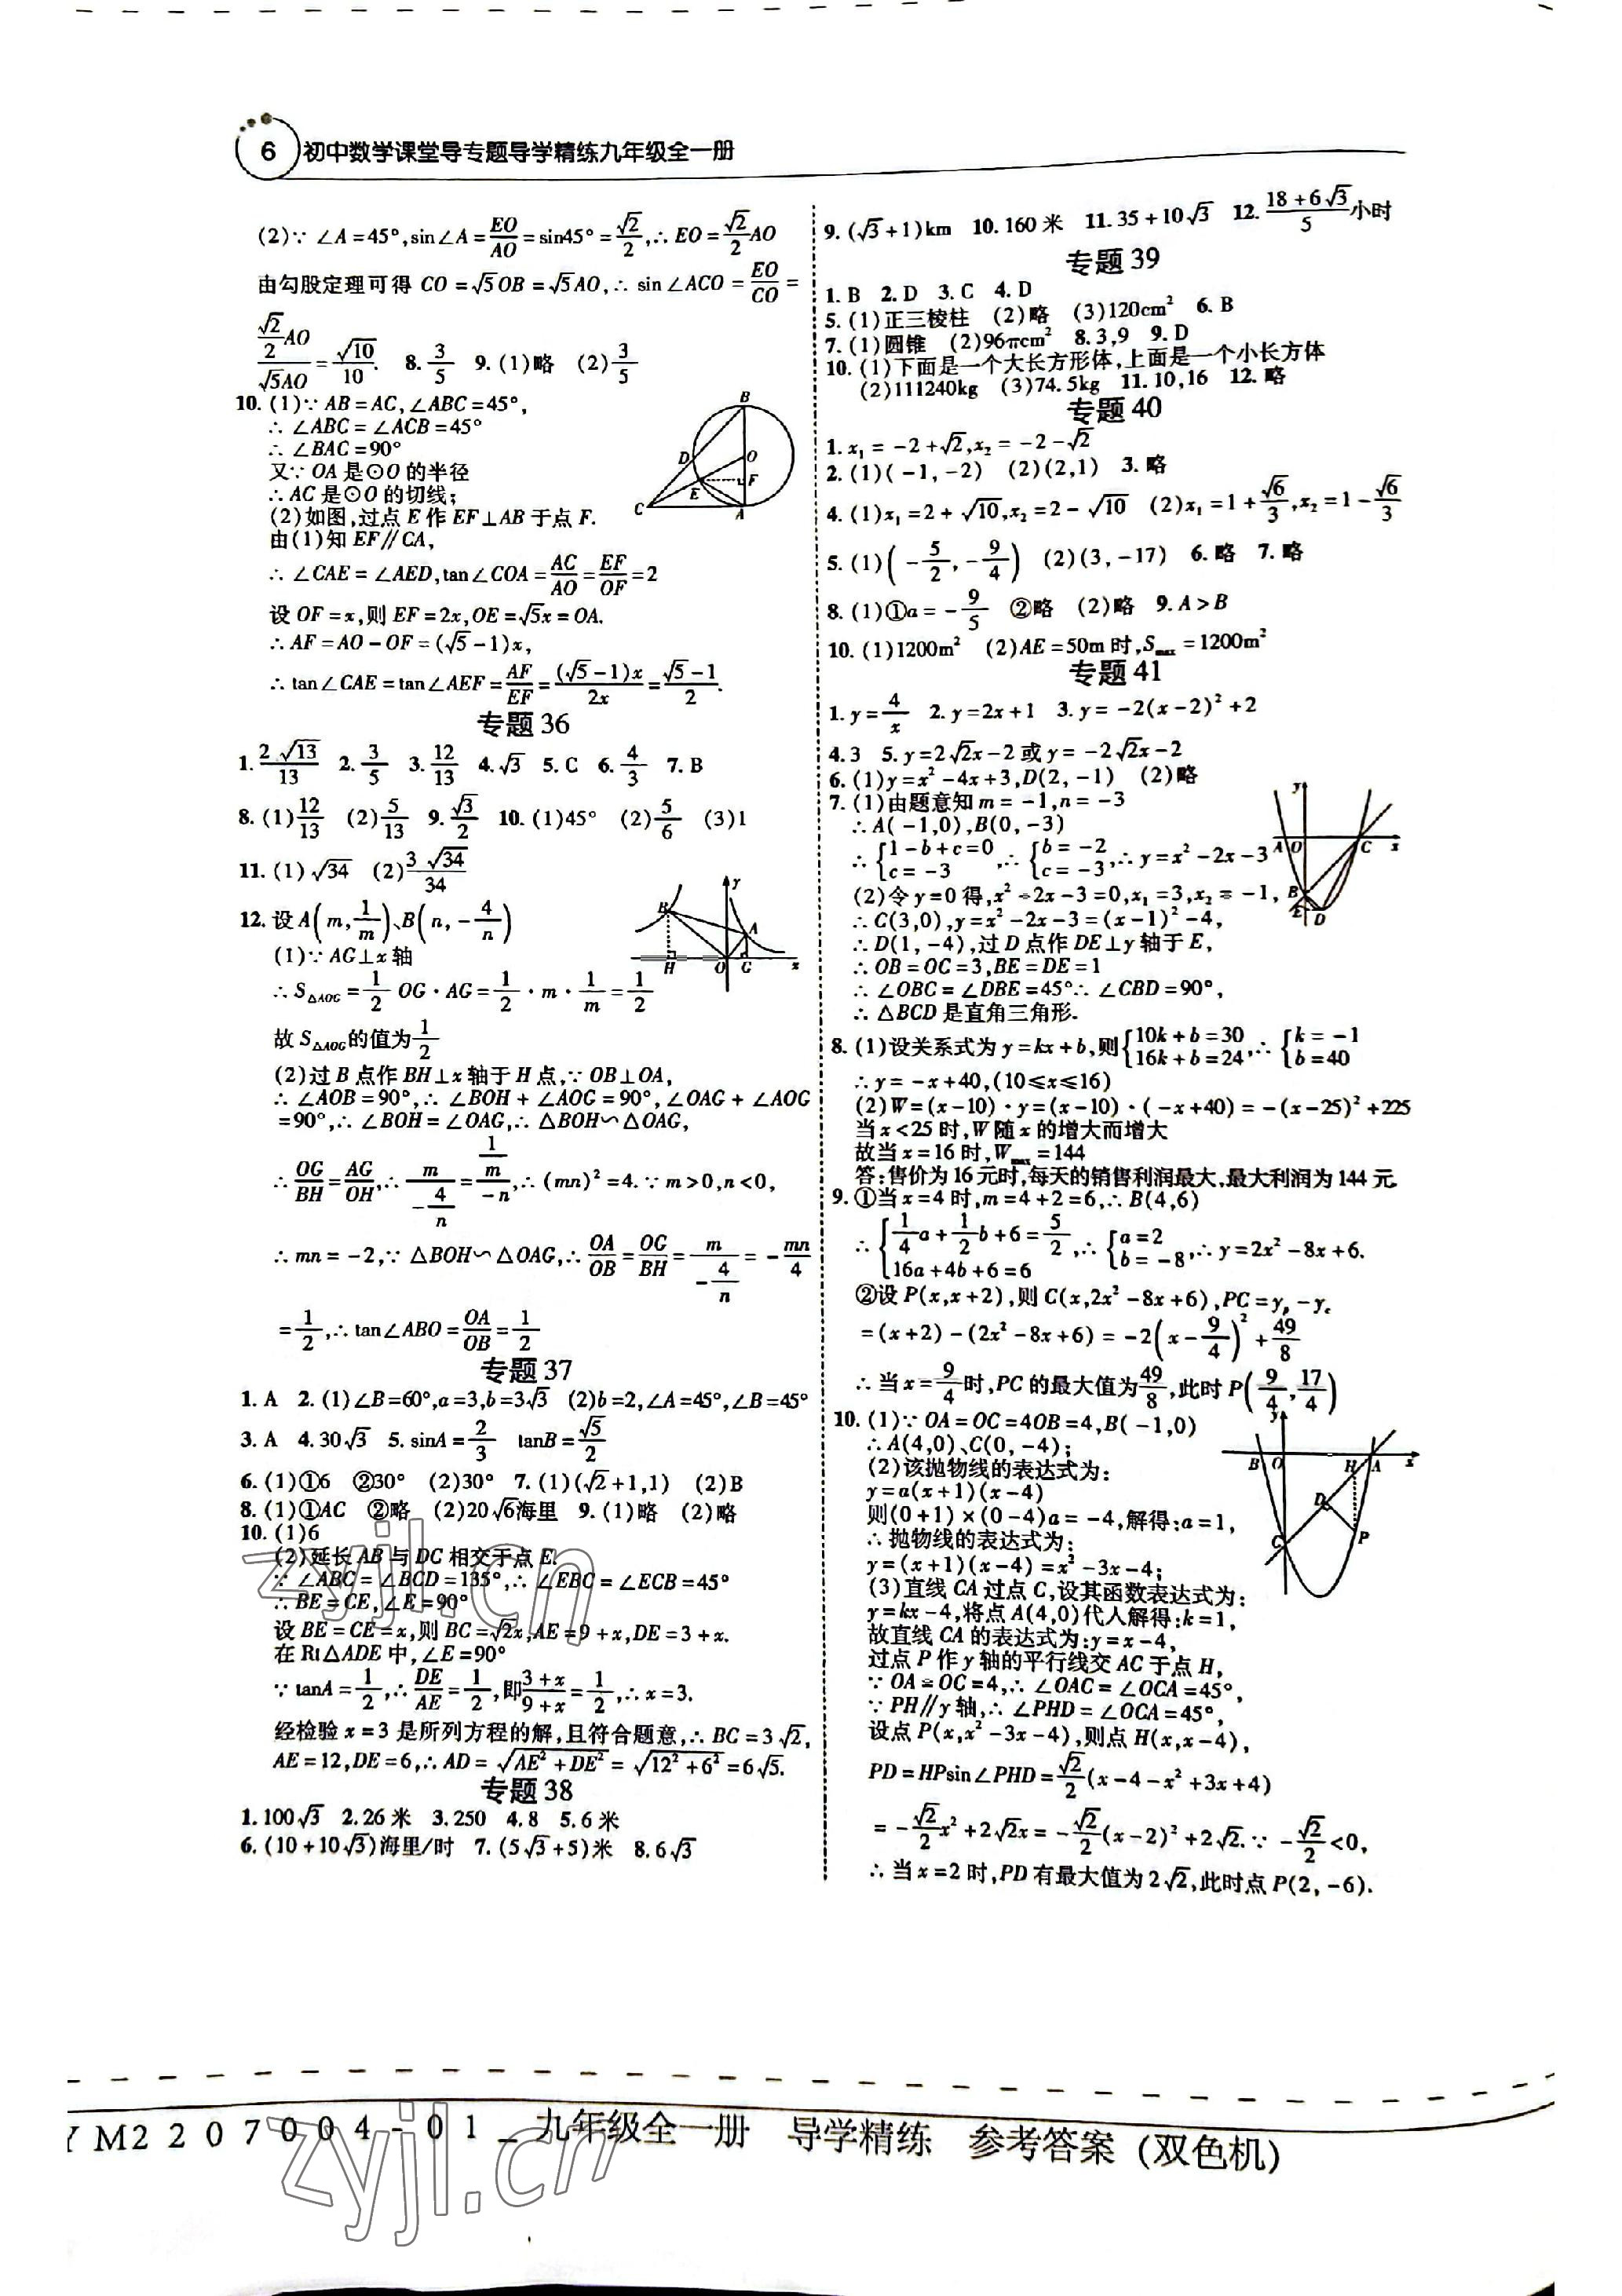 6 初中数学课堂导专题导学精练九年级全一册
(2)∵ ∠A=45°,sin∠A=EO/AO=sin45°=√2/2,∴ EO=√2/2AO
由勾股定理可得 CO=√5OB=√5AO,∴ sin∠ACO=EO/CO=
(√2/2AO)/(√5AO)=√10/10. 8. 3/5 9. (1)略 (2)3/5
10. (1)∵ AB=AC,∠ABC=45°,
∴ ∠ABC=∠ACB=45°
∴ ∠BAC=90°
又∵ OA是⊙O的半径
∴ AC是⊙O的切线;
(2)如图,过点E作EF⊥AB于点F.
由(1)知EF∥CA,
∴ ∠CAE=∠AED,tan∠COA=AC/AO=EF/OF=2
设OF=x,则EF=2x,OE=√5x=OA.
∴ AF=AO-OF=(√5-1)x,
∴ tan∠CAE=tan∠AEF=AF/EF=(√5-1)x/2x=(√5-1)/2.
B D O E F C A
专题36
1. 2√13/13 2. 3/5 3. 12/13 4. √3 5. C 6. 4/3 7. B
8. (1)12/13 (2)5/13 9. √3/2 10. (1)45° (2)5/6 (3)1
11. (1)√34 (2)3√34/34
12. 设A(m,1/m)、B(n,-4/n)
(1)∵ AG⊥x轴
∴ S△AOG=1/2 OG·AG=1/2·m·1/m=1/2
故S△AOG的值为1/2
y B A H O G x
(2)过B点作BH⊥x轴于H点,∵ OB⊥OA,
∴ ∠AOB=90°,∴ ∠BOH+∠AOG=90°,∠OAG+∠AOG
=90°,∴ ∠BOH=∠OAG,∴ △BOH∽△OAG,
∴ OG/BH=AG/OH,∴ m/(-4/n)=(1/m)/(-n),∴ (mn)²=4.∵ m>0,n<0,
∴ mn=-2,∵ △BOH∽△OAG,∴ OA/OB=OG/BH=m/(-4/n)=-mn/4
=1/2,∴ tan∠ABO=OA/OB=1/2
专题37
1. A 2. (1)∠B=60°,a=3,b=3√3 (2)b=2,∠A=45°,∠B=45°
3. A 4. 30√3 5. sinA=2/3 tanB=√5/2
6. (1)①6 ②30° (2)30° 7. (1)(√2+1,1) (2)B
8. (1)①AC ②略 (2)20√6海里 9. (1)略 (2)略
10. (1)6
(2)延长AB与DC相交于点E.
∵ ∠ABC=∠BCD=135°,∴ ∠EBC=∠ECB=45°
∴ BE=CE,∠E=90°
设BE=CE=x,则BC=√2x,AE=9+x,DE=3+x.
在Rt△ADE中,∠E=90°
∵ tanA=1/2,∴ DE/AE=1/2,即(3+x)/(9+x)=1/2,∴ x=3.
经检验x=3是所列方程的解,且符合题意,∴ BC=3√2,
AE=12,DE=6,∴ AD=√(AE²+DE²)=√(12²+6²)=6√5.
专题38
1. 100√3 2. 26米 3. 250 4. 8 5. 6米
6. (10+10√3)海里/时 7. (5√3+5)米 8. 6√3
9. (√3+1)km 10. 160米 11. 35+10√3 12. (18+6√3)/5小时
专题39
1. B 2. D 3. C 4. D
5. (1)正三棱柱 (2)略 (3)120cm² 6. B
7. (1)圆锥 (2)96πcm² 8. 3,9 9. D
10. (1)下面是一个大长方形体,上面是一个小长方体
(2)111240kg (3)74.5kg 11. 10,16 12. 略
专题40
1. x₁=-2+√2,x₂=-2-√2
2. (1)(-1,-2) (2)(2,1) 3. 略
4. (1)x₁=2+√10,x₂=2-√10 (2)x₁=1+√6/3,x₂=1-√6/3
5. (1)(-5/2,-9/4) (2)(3,-17) 6. 略 7. 略
8. (1)①a=-9/5 ②略 (2)略 9. A>B
10. (1)1200m² (2)AE=50m时,Smax=1200m²
专题41
1. y=4/x 2. y=2x+1 3. y=-2(x-2)²+2
4. 3 5. y=2√2x-2或y=-2√2x-2
6. (1)y=x²-4x+3,D(2,-1) (2)略
7. (1)由题意知m=-1,n=-3
∴ A(-1,0),B(0,-3)
∴ {1-b+c=0 c=-3,∴ {b=-2 c=-3,∴ y=x²-2x-3
(2)令y=0得,x²-2x-3=0,x₁=3,x₂=-1,
∴ C(3,0),y=x²-2x-3=(x-1)²-4,
∴ D(1,-4),过D点作DE⊥y轴于E,
∴ OB=OC=3,BE=DE=1
∴ ∠OBC=∠DBE=45°∴ ∠CBD=90°,
∴ △BCD是直角三角形.
y A O C x B E D
8. (1)设关系式为y=kx+b,则{10k+b=30 16k+b=24,∴ {k=-1 b=40
∴ y=-x+40,(10≤x≤16)
(2)W=(x-10)·y=(x-10)·(-x+40)=-(x-25)²+225
当x<25时,W随x的增大而增大
故当x=16时,Wmax=144
答:售价为16元时,每天的销售利润最大,最大利润为144元.
9. ①当x=4时,m=4+2=6,∴ B(4,6)
∴ {1/4a+1/2b+6=5/2 16a+4b+6=6,∴ {a=2 b=-8,∴ y=2x²-8x+6.
②设P(x,x+2),则C(x,2x²-8x+6),PC=yp-yc
=(x+2)-(2x²-8x+6)=-2(x-9/4)²+49/8
∴ 当x=9/4时,PC的最大值为49/8,此时P(9/4,17/4)
10. (1)∵ OA=OC=4OB=4,B(-1,0)
∴ A(4,0)、C(0,-4);
(2)该抛物线的表达式为:
y=a(x+1)(x-4)
则(0+1)×(0-4)a=-4,解得:a=1,
∴ 抛物线的表达式为:
y=(x+1)(x-4)=x²-3x-4;
(3)直线CA过点C,设其函数表达式为:
y=kx-4,将点A(4,0)代人解得:k=1,
故直线CA的表达式为:y=x-4,
过点P作y轴的平行线交AC于点H,
∵ OA=OC=4,∴ ∠OAC=∠OCA=45°,
∵ PH∥y轴,∴ ∠PHD=∠OCA=45°,
设点P(x,x²-3x-4),则点H(x,x-4),
PD=HPsin∠PHD=√2/2(x-4-x²+3x+4)
=-√2/2x²+2√2x=-√2/2(x-2)²+2√2.∵ -√2/2<0,
∴ 当x=2时,PD有最大值为2√2,此时点P(2,-6).
y B O H A x D C P
zyjl.cn
YM2207004-01_九年级全一册 导学精练 参考答案(双色机)
zyjl.cn